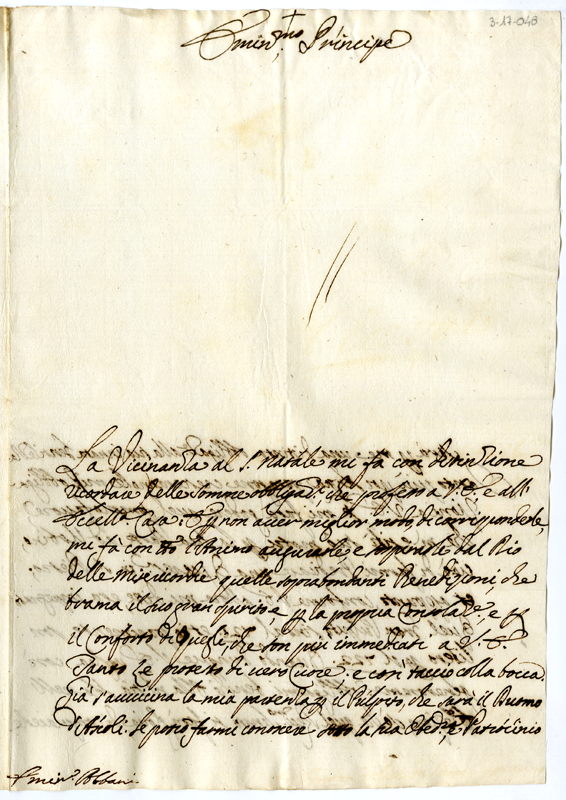 3-17-048
Emin.mo Principe
La Vicinanza al S. Natale mi fà con distinzione
ricordare delle somme obbligaz.i, che professo a V. E. e all'
Eccell.a Casa: E non aver miglior modo di corrisponderle,
mi fà con l'Animo augurarle e dal Dio
delle Misericordie quelle soprabondanti Benedizioni, che
brama il suo gran spirito, e la propria e
il Conforto di quegli, che son più immediati a V. E.
Tanto Le protesto di vero Cuore. e con taccio colla bocca.
Già s'avvicina la mia partenza il Pulpito, che sarà il Duomo
d'Ascoli. Se potrò farmi conoscere sotto la sua e Patrocinio
Emin.o Albani